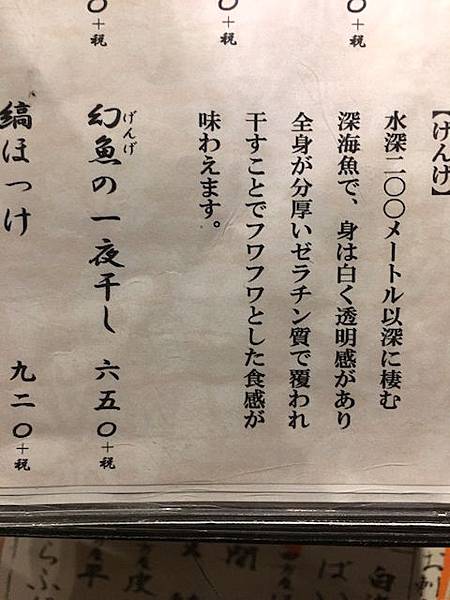 〇+税
〇+税
〇+税
【げんげ】
水深二〇〇メートル以深に棲む
深海魚で、身は白く透明感があり
全身が分厚いゼラチン質で覆われ
干すことでフワフワとした食感が
味わえます。
幻魚の一夜干し 六五〇+税
げんげ
縞ほっけ 九二〇+税